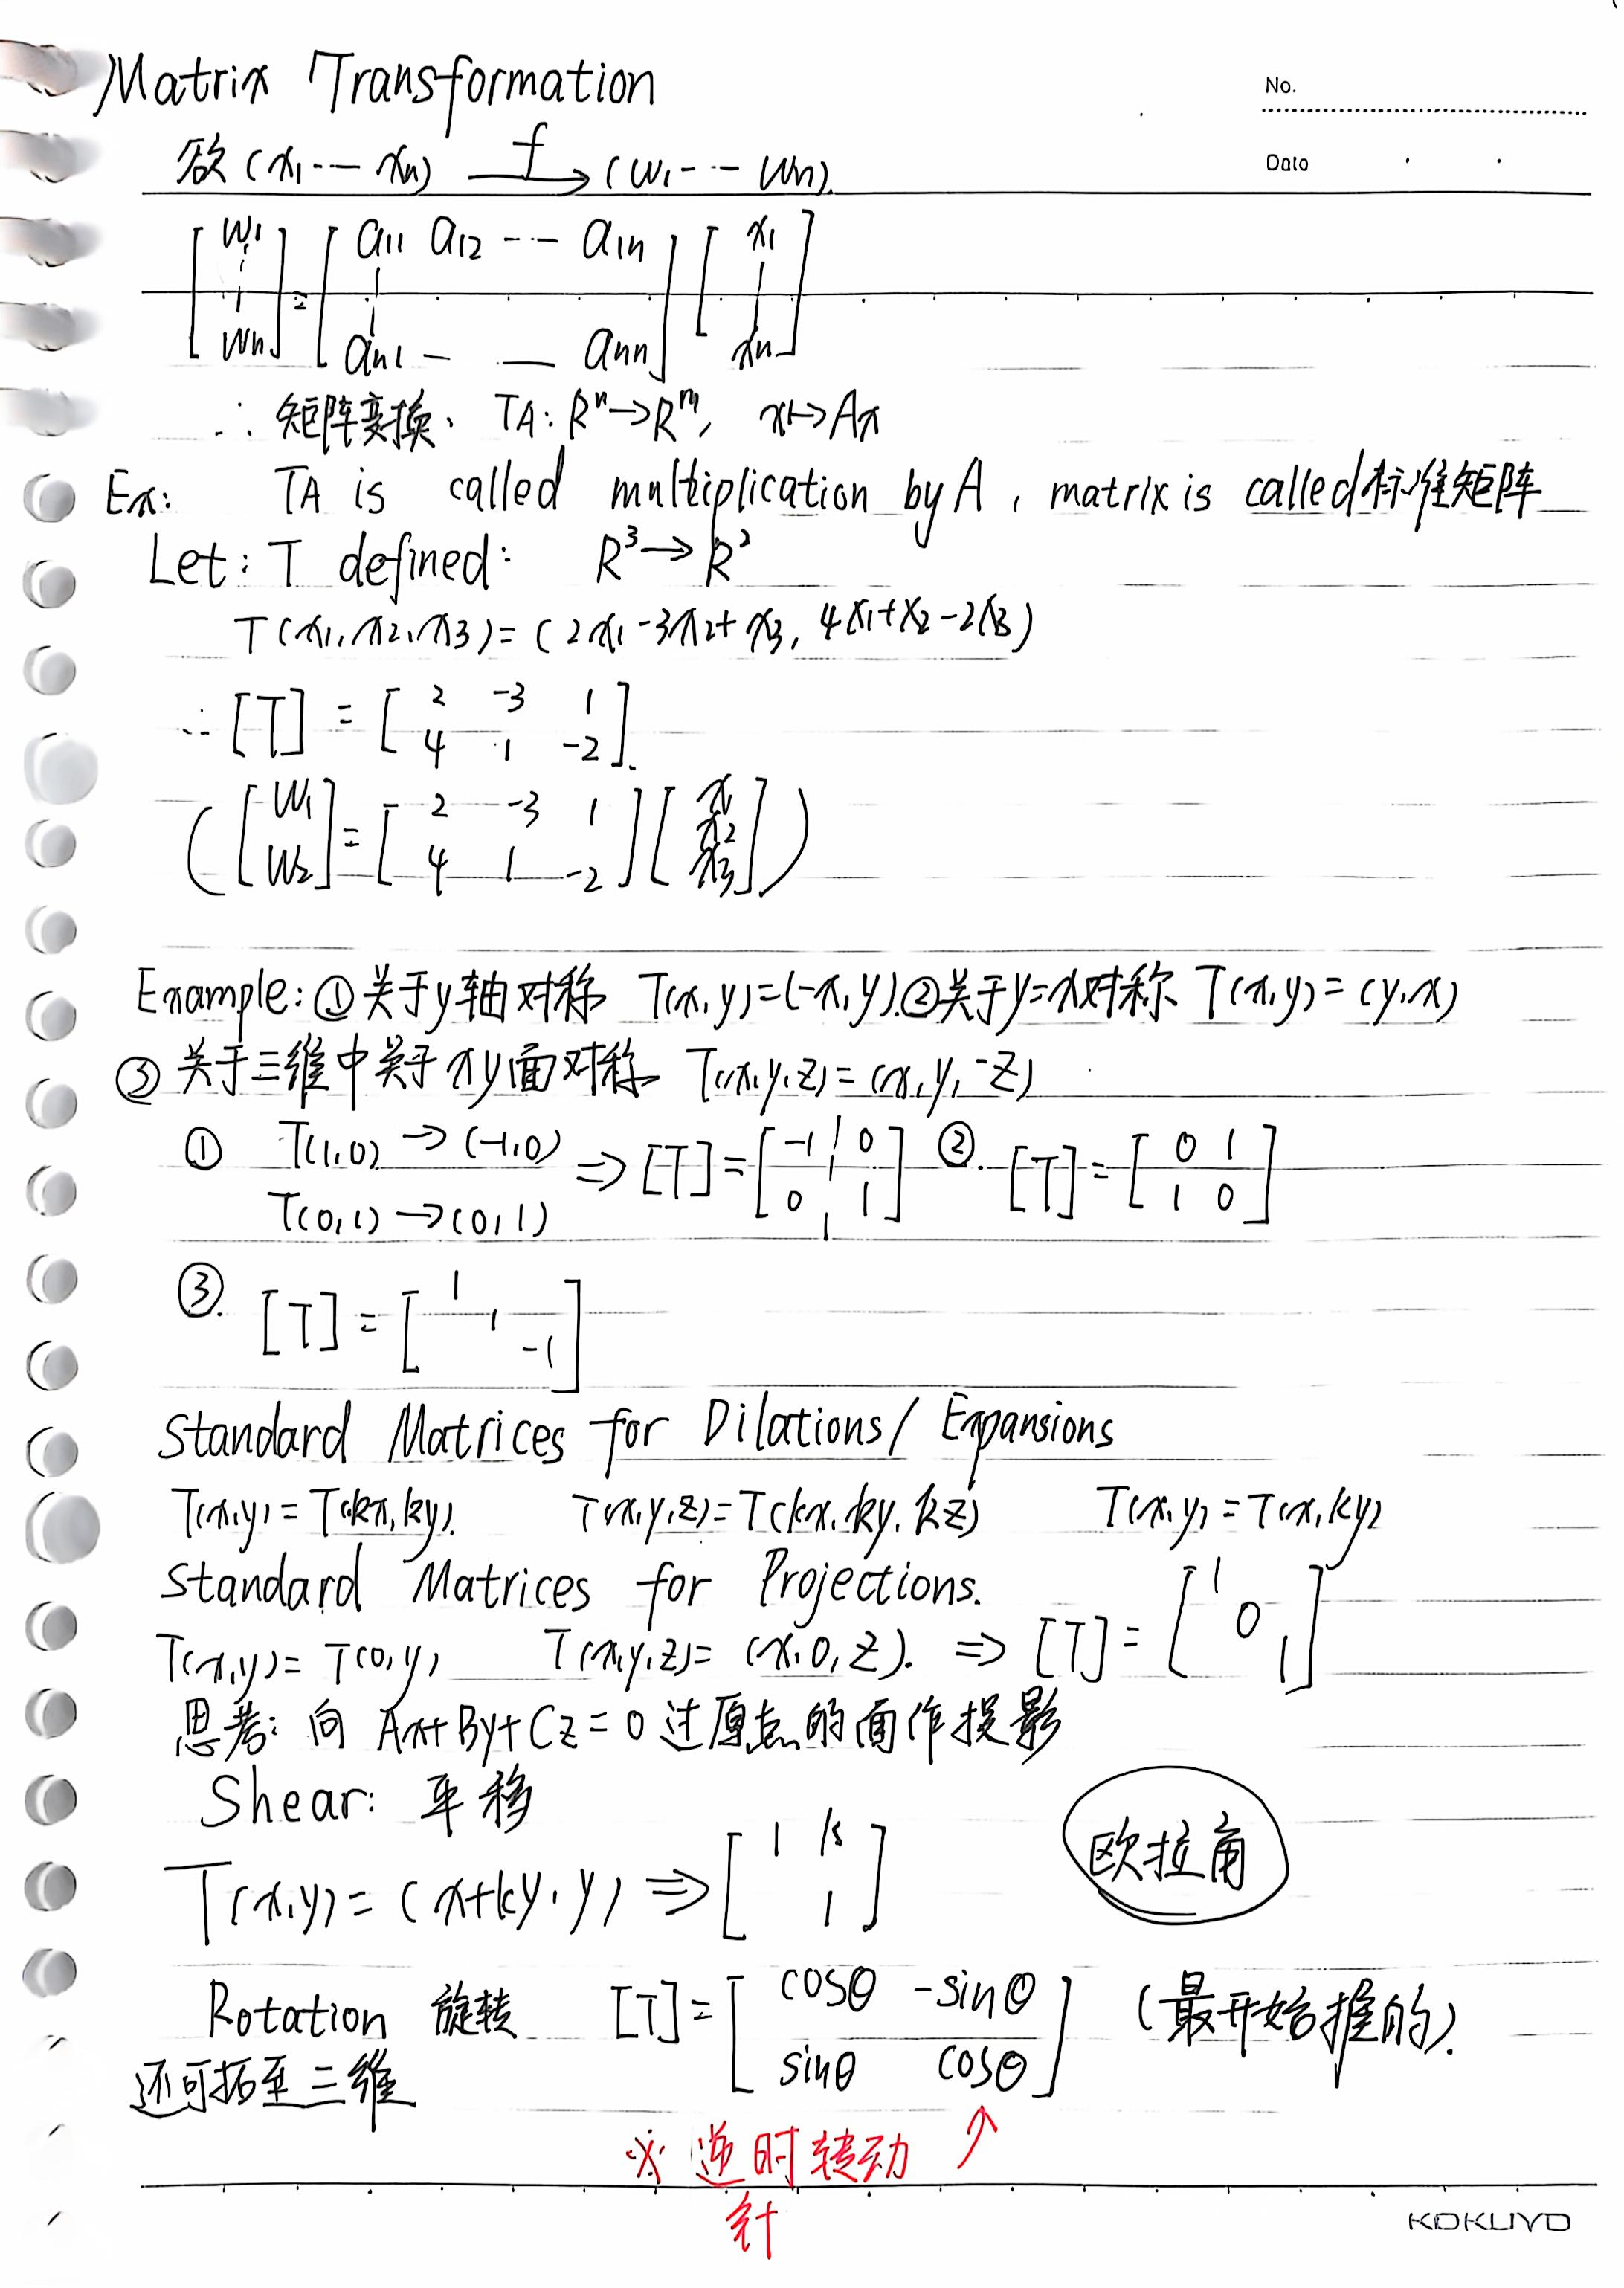 Matrix Transformation
No.
Date
欲 (x₁--- xₙ) —f→ (w₁--- wₙ).
[w₁ ⋮ wₙ] = [a₁₁ a₁₂ --- a₁ₙ ⋮ aₙ₁ — — aₙₙ] [x₁ ⋮ xₙ]
∴ 矩阵变换、 TA: Rⁿ→Rᵐ, x↦Ax
Ex: TA is called multiplication by A, matrix is called 标准矩阵
Let: T defined: R³→R²
T(x₁,x₂,x₃)=(2x₁-3x₂+x₃, 4x₁+x₂-2x₃)
∴ [T] = [2 -3 1; 4 1 -2].
([w₁; w₂] = [2 -3 1; 4 1 -2] [x₁; x₂; x₃])
Example: ①关于y轴对称 T(x,y)=(-x,y). ②关于y=x对称 T(x,y)=(y,x)
③ 关于三维中关于xy面对称 T(x,y,z)=(x,y,-z)
① T(1,0)→(-1,0) T(0,1)→(0,1) ⇒ [T]=[-1 0; 0 1] ②. [T]=[0 1; 1 0]
③. [T] = [1 1 -1]
Standard Matrices for Dilations/Expansions
T(x,y)=T(kx,ky). T(x,y,z)=T(kx,ky,kz) T(x,y)=T(x,ky)
Standard Matrices for Projections.
T(x,y)=T(0,y) T(x,y,z)=(x,0,z). ⇒ [T]=[1 0 1]
思考: 向 Ax+By+Cz=0 过原点的面作投影
Shear: 平移
T(x,y)=(x+ky,y) ⇒ [1 k; 1]
欧拉角
Rotation 旋转 [T]=[cosθ -sinθ; sinθ cosθ] (最开始推的).
还可拓至三维
※ 逆时转动 ↗
针
KOKUYO